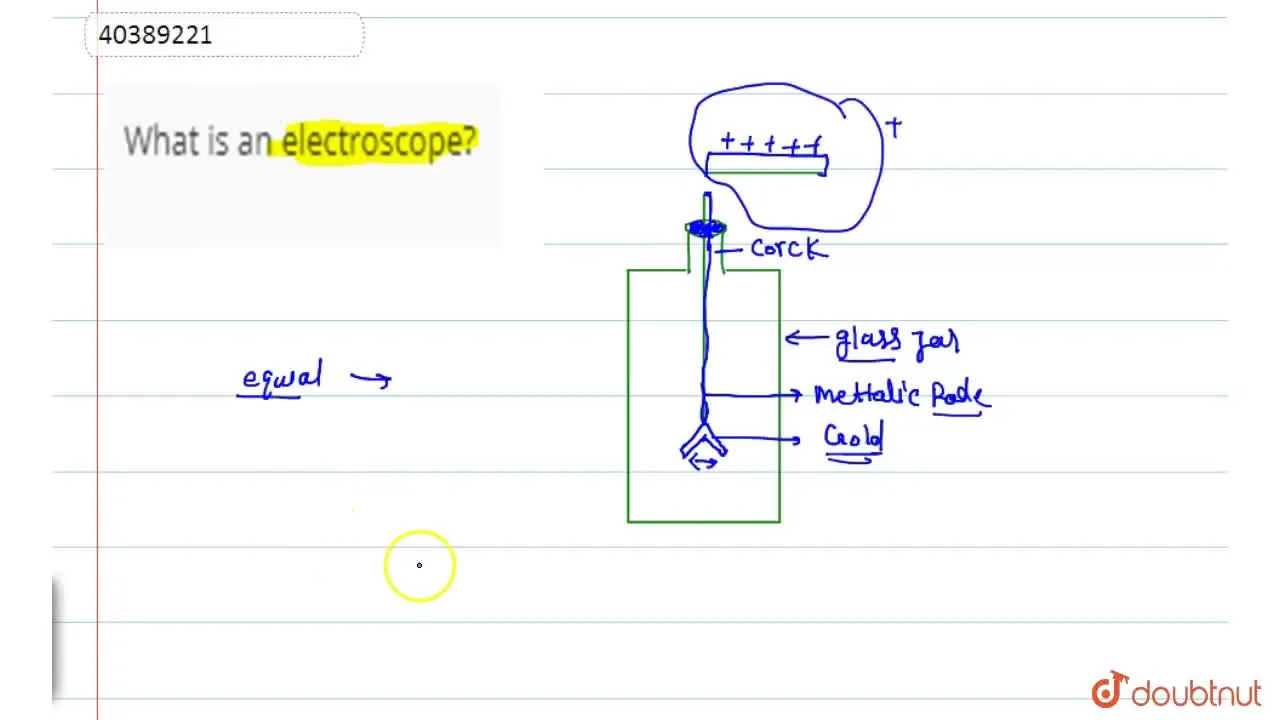 40389221
What is an electroscope?
+ + + + +
+
corck
glass Jar
equal →
mettalic Rode
Gold
doubtnut